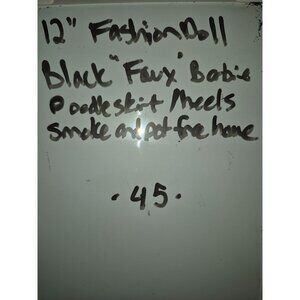 12" Fashion Doll
Black "Faux" Barbie
Poodle skirt / heels
smoke and pet free home
. 45 .